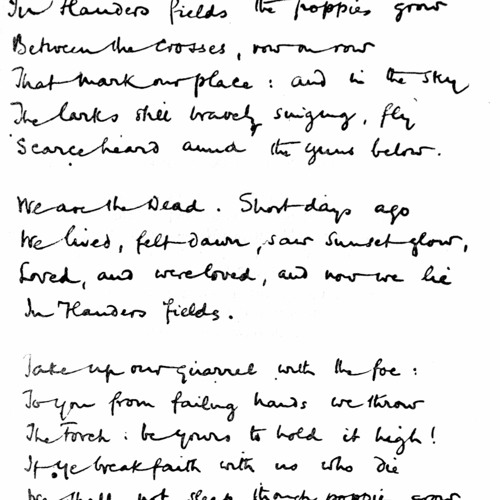 In Flanders fields the poppies grow
Between the crosses, row on row
That mark our place : and in the sky
The larks still bravely singing, fly
Scarce heard amid the guns below.
We are the Dead. Short days ago
We lived, felt dawn, saw sunset glow,
Loved, and were loved, and now we lie
In Flanders fields.
Take up our quarrel with the foe :
To you from failing hands we throw
The Torch : be yours to hold it high!
If ye break faith with us who die
We shall not sleep, though poppies grow